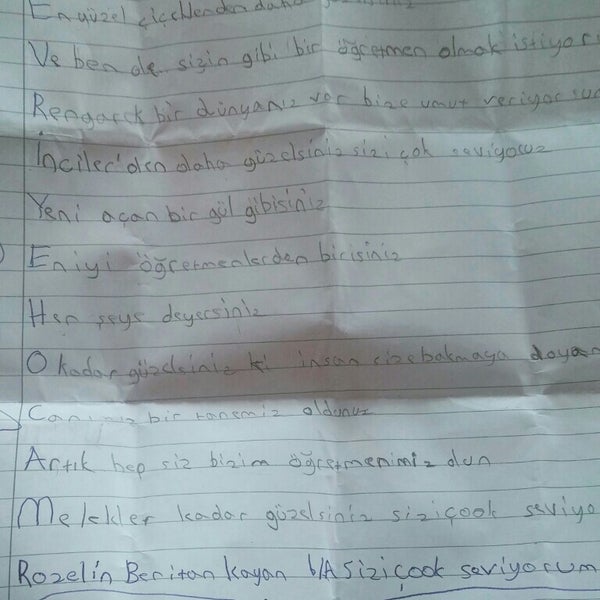 En güzel çiçeklerden daha
Ve ben de sizin gibi bir öğretmen olmak istiyor
Rengarek bir dünyanız var bize umut veriyor
İnciler'den daha güzelsiniz sizi çok seviyoruz
Yeni açan bir gül gibisiniz
En iyi öğretmenlerden birisiniz
Her şeye deyersiniz
O kadar güzelsiniz ki insan size bakmaya dayan
Canımız bir tanemiz oldunuz
Artık hep siz bizim öğretmenimiz olun
Melekler kadar güzelsiniz sizi çook seviyo
Rozelin Beritan Kayan 6/A Sizi çook seviyorum